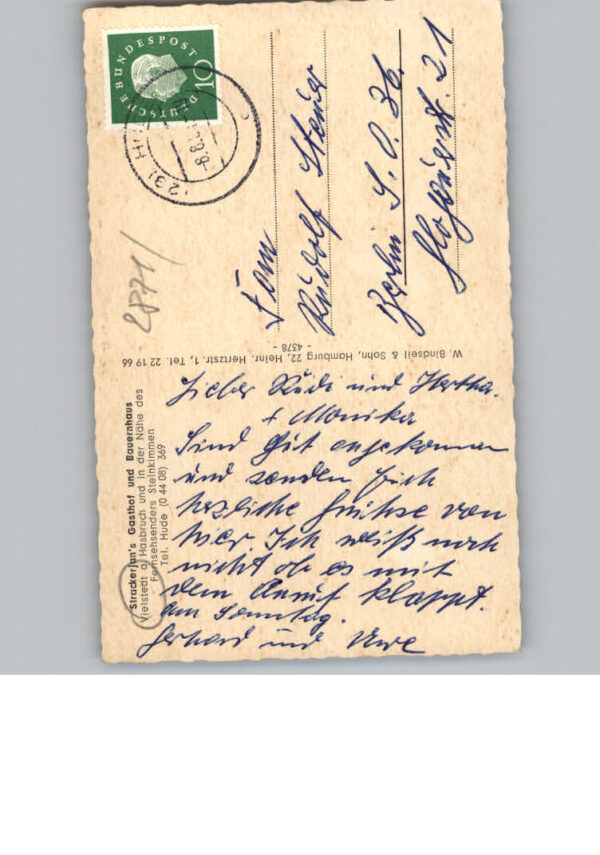 DEUTSCHE BUNDESPOST
10
(23) HU
-8.8.
2871/
Fam
Rudolf Steuer
Berlin S. O. 36.
Glogauerst. 21
W. Bindseil & Sohn, Hamburg 22, Heinr. Hertzstr. 1, Tel. 22 19 66
- 4378 -
Strackerjan's Gasthof und Bauernhaus
Vielstedt a/Hasbruch und in der Nähe des
Fernsehsenders Steinkimmen
Tel. Hude (0 44 08) 369
Lieber Rudi und Hertha.
+ Monika
Sind Gut angekommen
und senden Euch
herzliche Grühse von
hier Ich weiß noch
nicht ob es mit
dem Anruf klappt.
am Sonntag.
Gerhard und Uwe